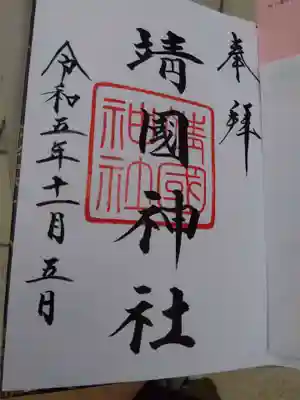 奉拝
靖國神社
靖國
神社
令和五年十一月五日